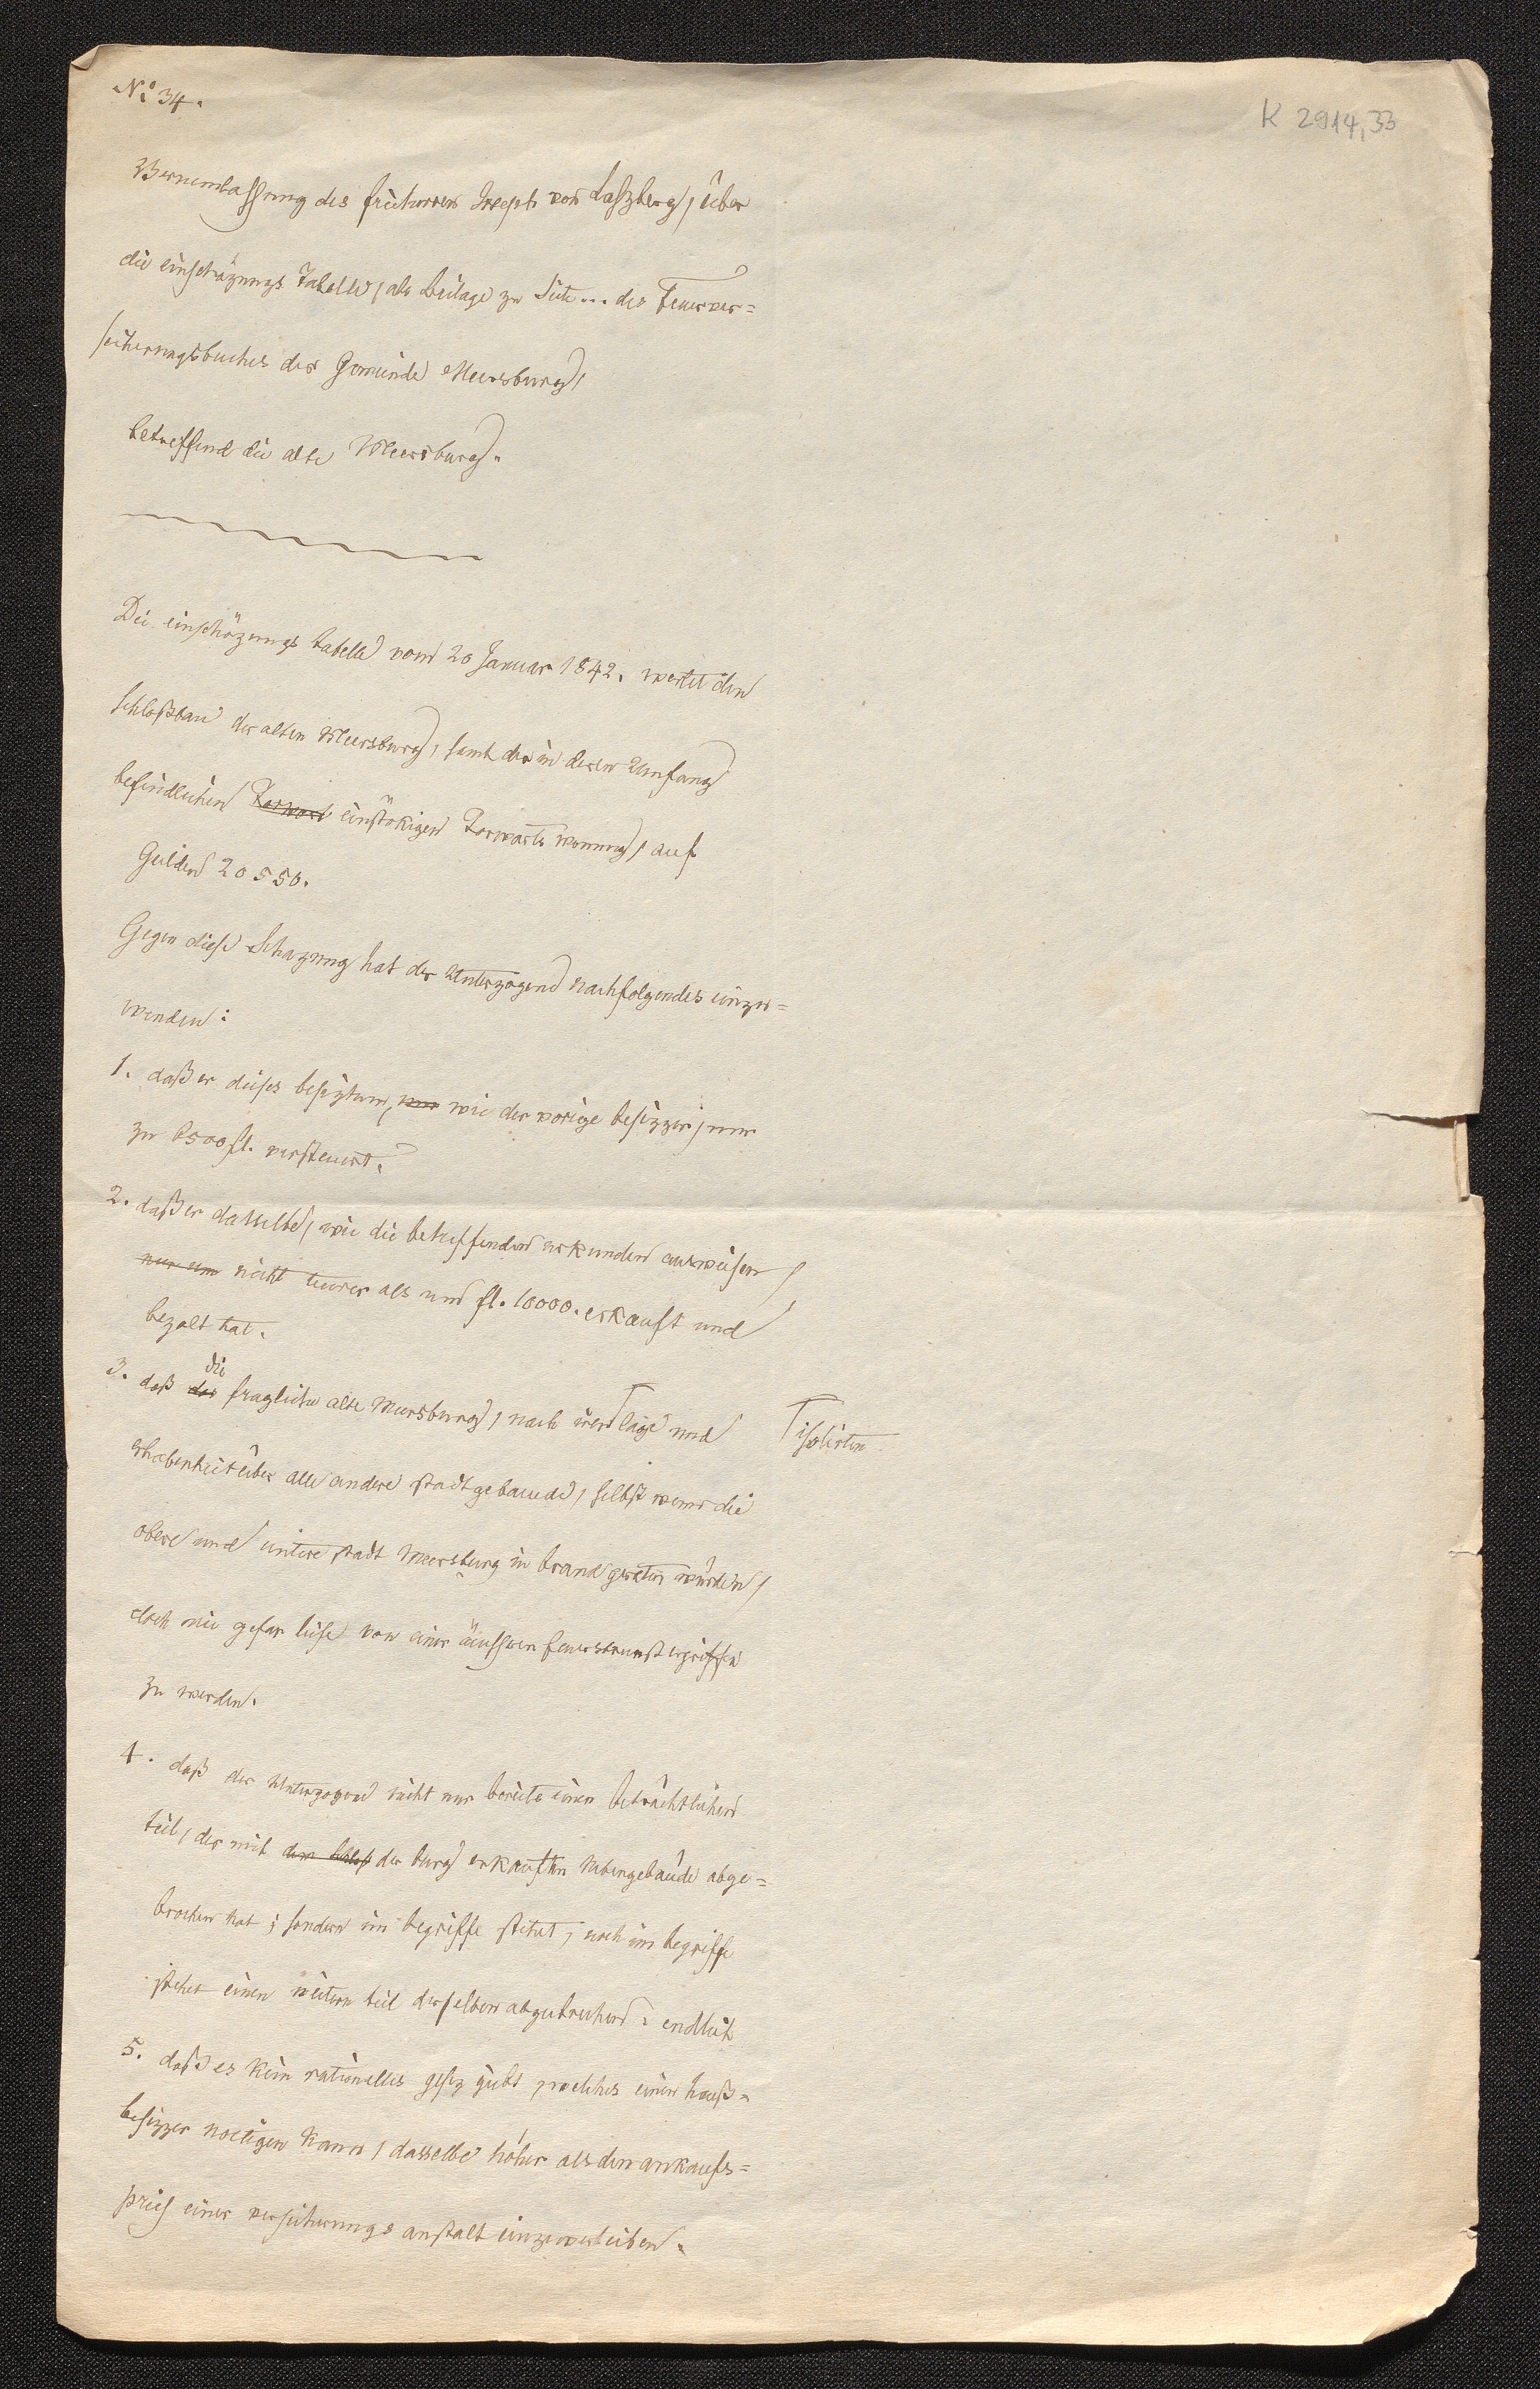 No. 34.
K 2914,33
Vernemlassung des freiherren Joseph von Laßberg, über
die einschäzungs Tabelle, als beilage zu Seite... des Feuerver=
sicherungsbuches der Gemeinde Meersburg,
betreffend die alte Meersburg.
Die einschäzungs tabelle vom 20 Januar 1842. wertet den
schloßbau der alten Meersburg, samt der in deren Umfang
befindlichen Torwart einstökigen Torwarts wonung, auf
Gulden 20550.
Gegen diese Schazung hat der Unterzogene nachfolgendes einzu=
wenden:
1. daß er dieses besiztum, nur wie der vorige besizzer, nur
zu 8500 fl. versteuert.
2. daß er dasselbe, wie die betreffenden urkunden ausweisen,
nur um nicht teurer als um fl. 10000. erkauft und
bezalt hat.
3. daß der die fragliche alte Meersburg, nach irer ⌈ lage und
⌈ isolirten
erhabenheit über alle andere stadtgebaeude, selbst wenn die
obere und untere stadt Meersburg in brand geraten würden,
doch nie gefar liefe von einer äussern feuersbrunst ergriffen
zu werden.
4. daß der Unterzogene nicht nur bereits einen beträchtlichen
teil, der mit dem schloß der burg erkauften nebengebäude abge=
brochen hat; sondern im begriffe stehet, noch im begriffe
stehet einen weitern teil derselben abzubrechen. endlich
5. daß es kein rationelles gesez gibt, welches einen hauß=
besizzer noetigen kann, dasselbe höher als den ankaufs=
preis einer versicherungs anstalt einzuverleiben.